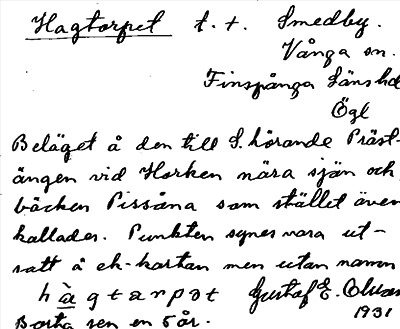 Hagtorpet t. t. Smedby.
Vånga sn.
Finspånga länshd
Ögl
Beläget å den till S. hörande Präst-
ängen vid Horken nära sjön och
bäcken Pissåna som stället även
kallades. Punkten synes vara ut-
satt å ek-kartan men utan namn
hàgtarpət Gustaf E. Olsson
Borta sen en 5 år. 1931